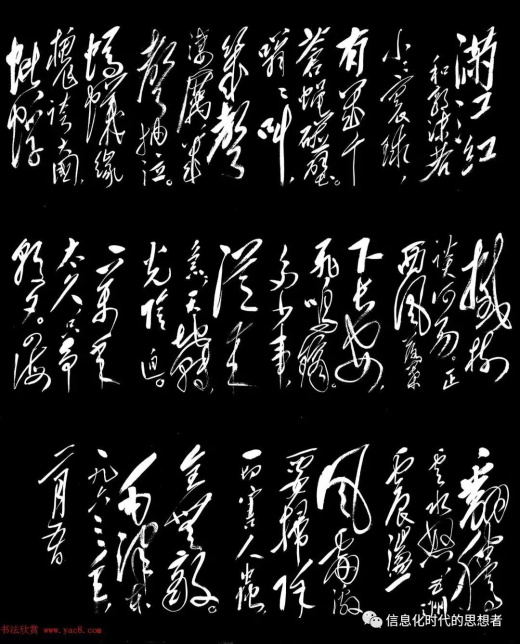 满江红
和郭沫若
小小寰球，
有几个
苍蝇碰壁。
嗡嗡叫，
几聲
凄厲，几
聲抽泣。
螞蟻缘
槐夸大國，
蚍蜉
撼樹
谈何易。正
西風落葉
下长安，
飛鸣镝。
多少事，
從来
急；天地轉，
光陰迫。
一萬年
太久，只争
朝夕。四海
翻騰
雲水怒，五洲
震盪
風雷激。
要掃除
一切害人蟲，
全無敵。
毛泽东
一九六三年
二月五日
书法欣赏 www.yac8.com
信息化时代的思想者